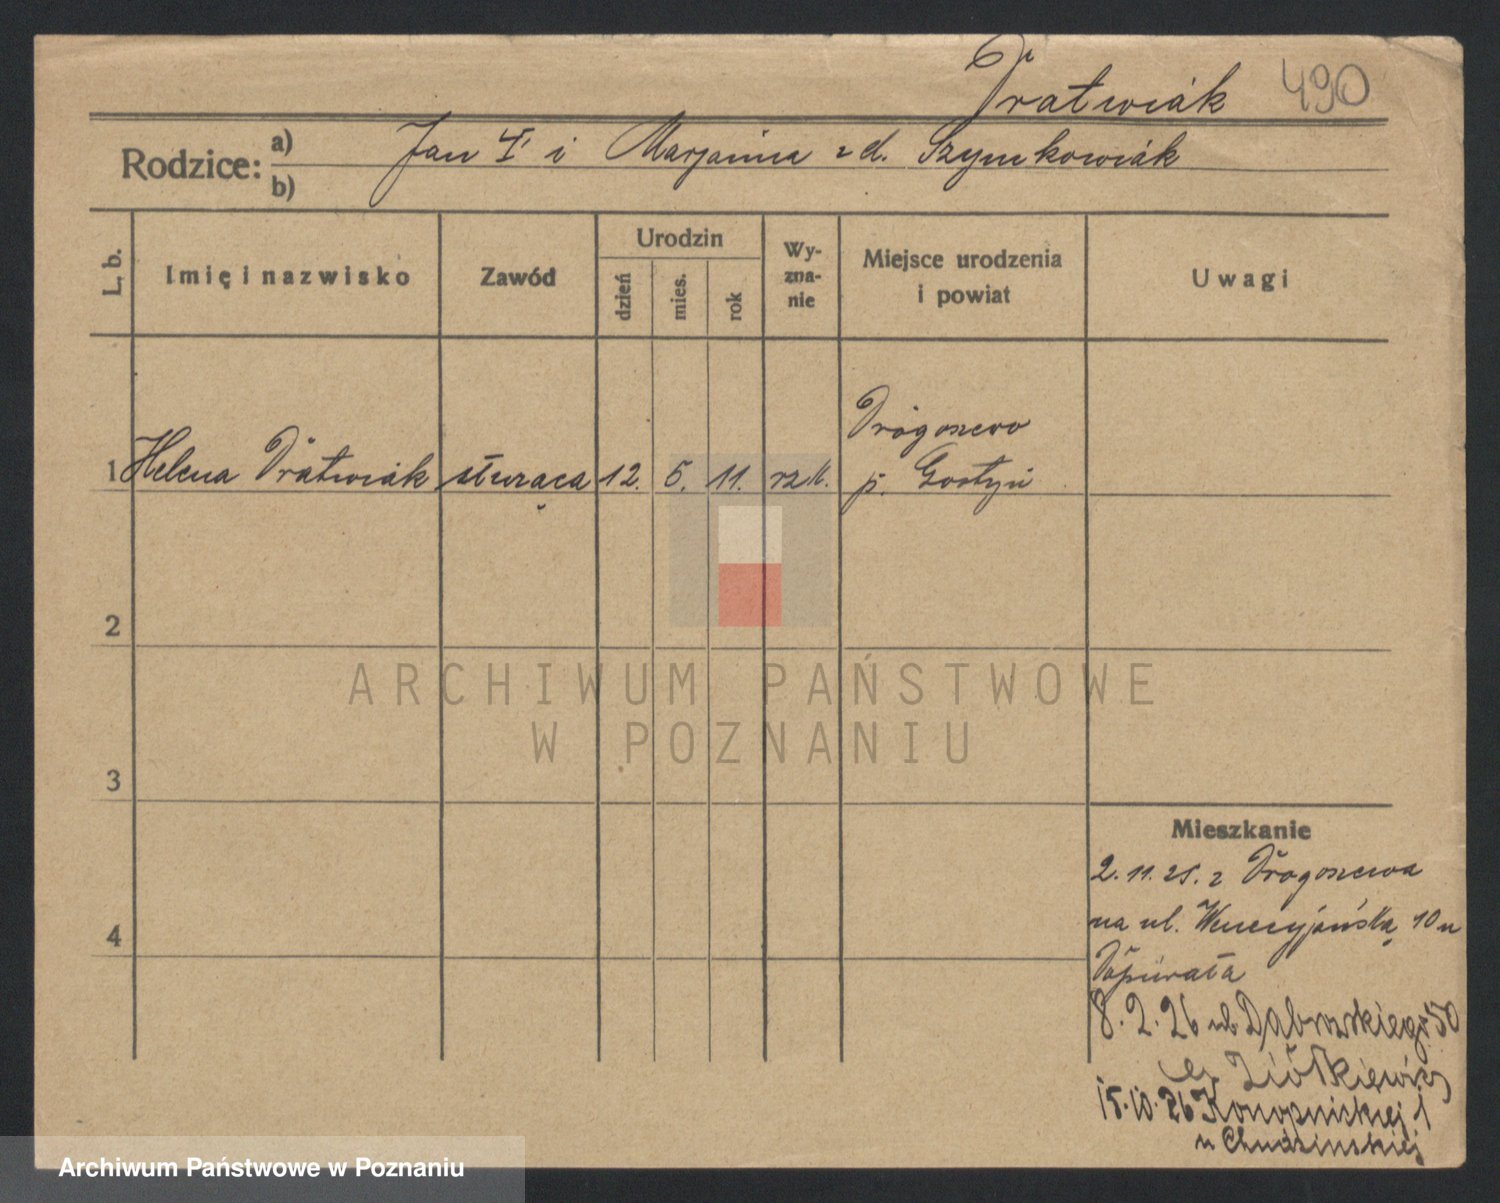 Dratwiak 490
Rodzice: a) Jan i Marjanna z d. Szymkowiak
b)
L. b.
Imię i nazwisko
Zawód
Urodzin
dzień
mies.
rok
Wy-
zna-
nie
Miejsce urodzenia
i powiat
Uwagi
Drogoszewo
1 Helena Dratwiak służąca 12. 5. 11. rzk. p. Gostyń
2
3
4
Mieszkanie
2. 11. 25. z Drogoszewa
na ul. Wenecyjańską 10 u
8. 2. 26 ul. Dąbrowskiego 50
Ziółkiewicz
15. 10. 26 Konopnickiej 1
u Chudzińskiej
ARCHIWUM PAŃSTWOWE
W POZNANIU
Archiwum Państwowe w Poznaniu